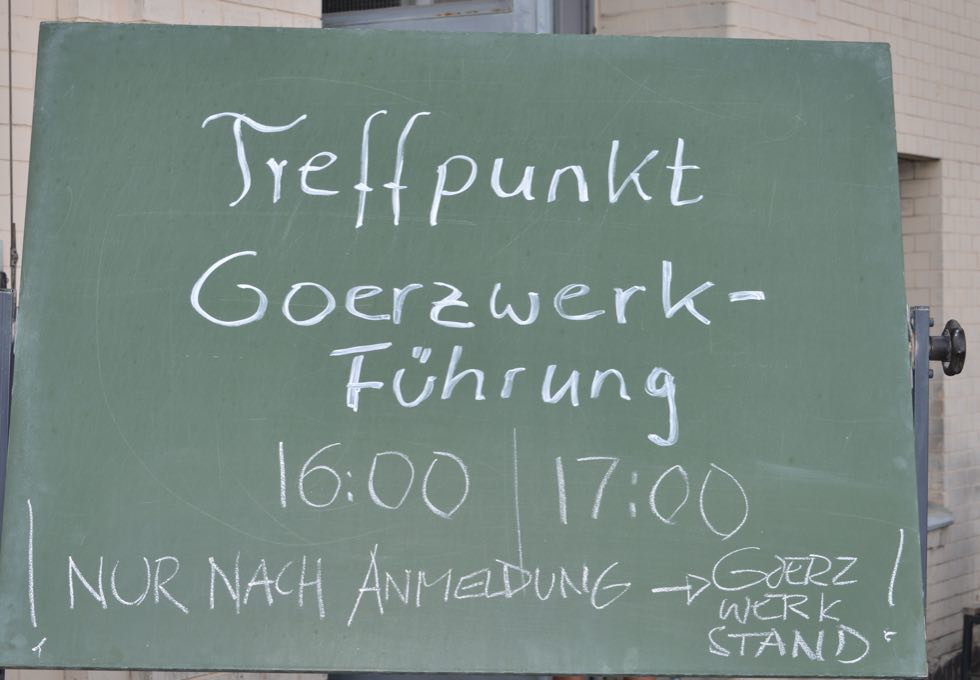 Treffpunkt
Goerzwerk-
Führung
16:00 | 17:00
! NUR NACH ANMELDUNG → GOERZ
WERK
STAND !